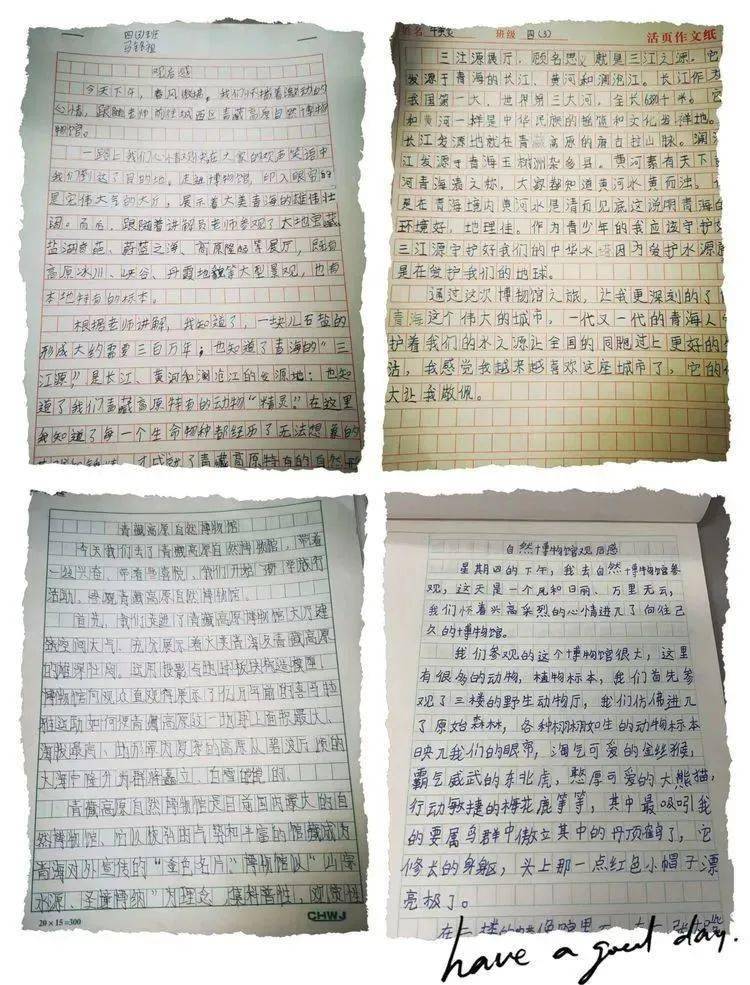 四(3)班
观后感
今天下午,春风微拂。我们怀揣着激动的
心情,跟随老师前往城西区青藏高原自然博物
物馆。
一路上我们心情欢快在大家的欢声笑语中
我们到达了目的地。走进博物馆,印入眼帘的
是它伟大气的大厅,展示着大美青海的雄伟壮
阔。而后,跟随着讲解员老师参观了大地宝藏
盐湖奇葩、蔚蓝之海、高原隆起等展厅,既有
高原冰川、峡谷、丹霞地貌等大型景观,也有
本地特有的标本。
根据老师讲解,我知道了,一块儿石盐的
形成大约需要三百万年;也知道了青海的“三
江源”是长江、黄河和澜沧江的发源地;也知
道了我们青藏高原特有的动物“精灵”在这里
我知道了每一个生命物种都经历了无法想象的
才成就了青藏高原特有的自然形
姓名 班级 四(3) 活页作文纸
三江源展厅,顾名思义就是三江之源。它
发源于青海的长江、黄河和澜沧江。长江作为
我国第一大、世界第三大河,全长6300千米。它
和黄河一样是中华民族的摇篮和文化发祥地。
长江发源地就在青藏高原的唐古拉山脉。澜沧
江发源于青海玉树洲杂多县。黄河素有天下
河青海清之称,大家都知道黄河水黄而浊。
是在青海境内黄河水是清而见底这说明青海的
环境好,地理佳。作为青少年的我应该守护
三江源守护好我们的中华水塔因为爱护水源
是在爱护我们的地球。
通过这次博物馆之旅,让我更深刻的了
青海这个伟大的城市,一代又一代的青海人
护着我们的水之源让全国的同胞过上更好的生
活,我感觉我越来越喜欢这座城市了,它的伟
大让我敬佩。
青藏高原自然博物馆
今天我们去了青藏高原自然博物馆,带着
一丝兴奋、带着些喜悦,我们开始了研学旅行
活动,参观青藏高原自然博物馆。
首先,我们走进了青藏高原博物馆大厅建
筑空间大气,充分展示着大美青海及青藏高原
的雄深壮阔。运用投影与地印板块构造模型,
博物馆向观众直观得展示了亿万年前的喜马拉
雅运动如何使青藏高原这一地球上面积最大、
海拔最高、地形最为复杂的高原从碧波万顷的
大海中隆升为群峰矗立、白雪皑皑的。
青藏高原自然博物馆是目前国内最大的自
然博物馆,它以恢弘的气势和丰富的馆藏成为
青海对外宣传的“金色名片”,博物馆以“山宗
水源、圣疆博纳”为理念,集科普性,观赏性
20×15=300
CHWJ
自然博物馆观后感
星期四的下午,我去自然博物馆参
观,这天是一个风和日丽、万里无云,
我们怀着兴高采烈的心情进入了向往已
久的博物馆。
我们参观的这个博物馆很大,这里
有很多的动物,植物标本,我们首先参
观了三楼的野生动物厅,我们仿佛进入
了原始森林,各种栩栩如生的动物标本
映入我们的眼帘,淘气可爱的金丝猴,
霸气威武的东北虎,憨厚可爱的大熊猫,
行动敏捷的梅花鹿等等,其中最吸引我
的要属鸟群中傲立其中的丹顶鹤了,它
修长的身躯,头上那一点红色小帽子漂
亮极了。
have a good day.